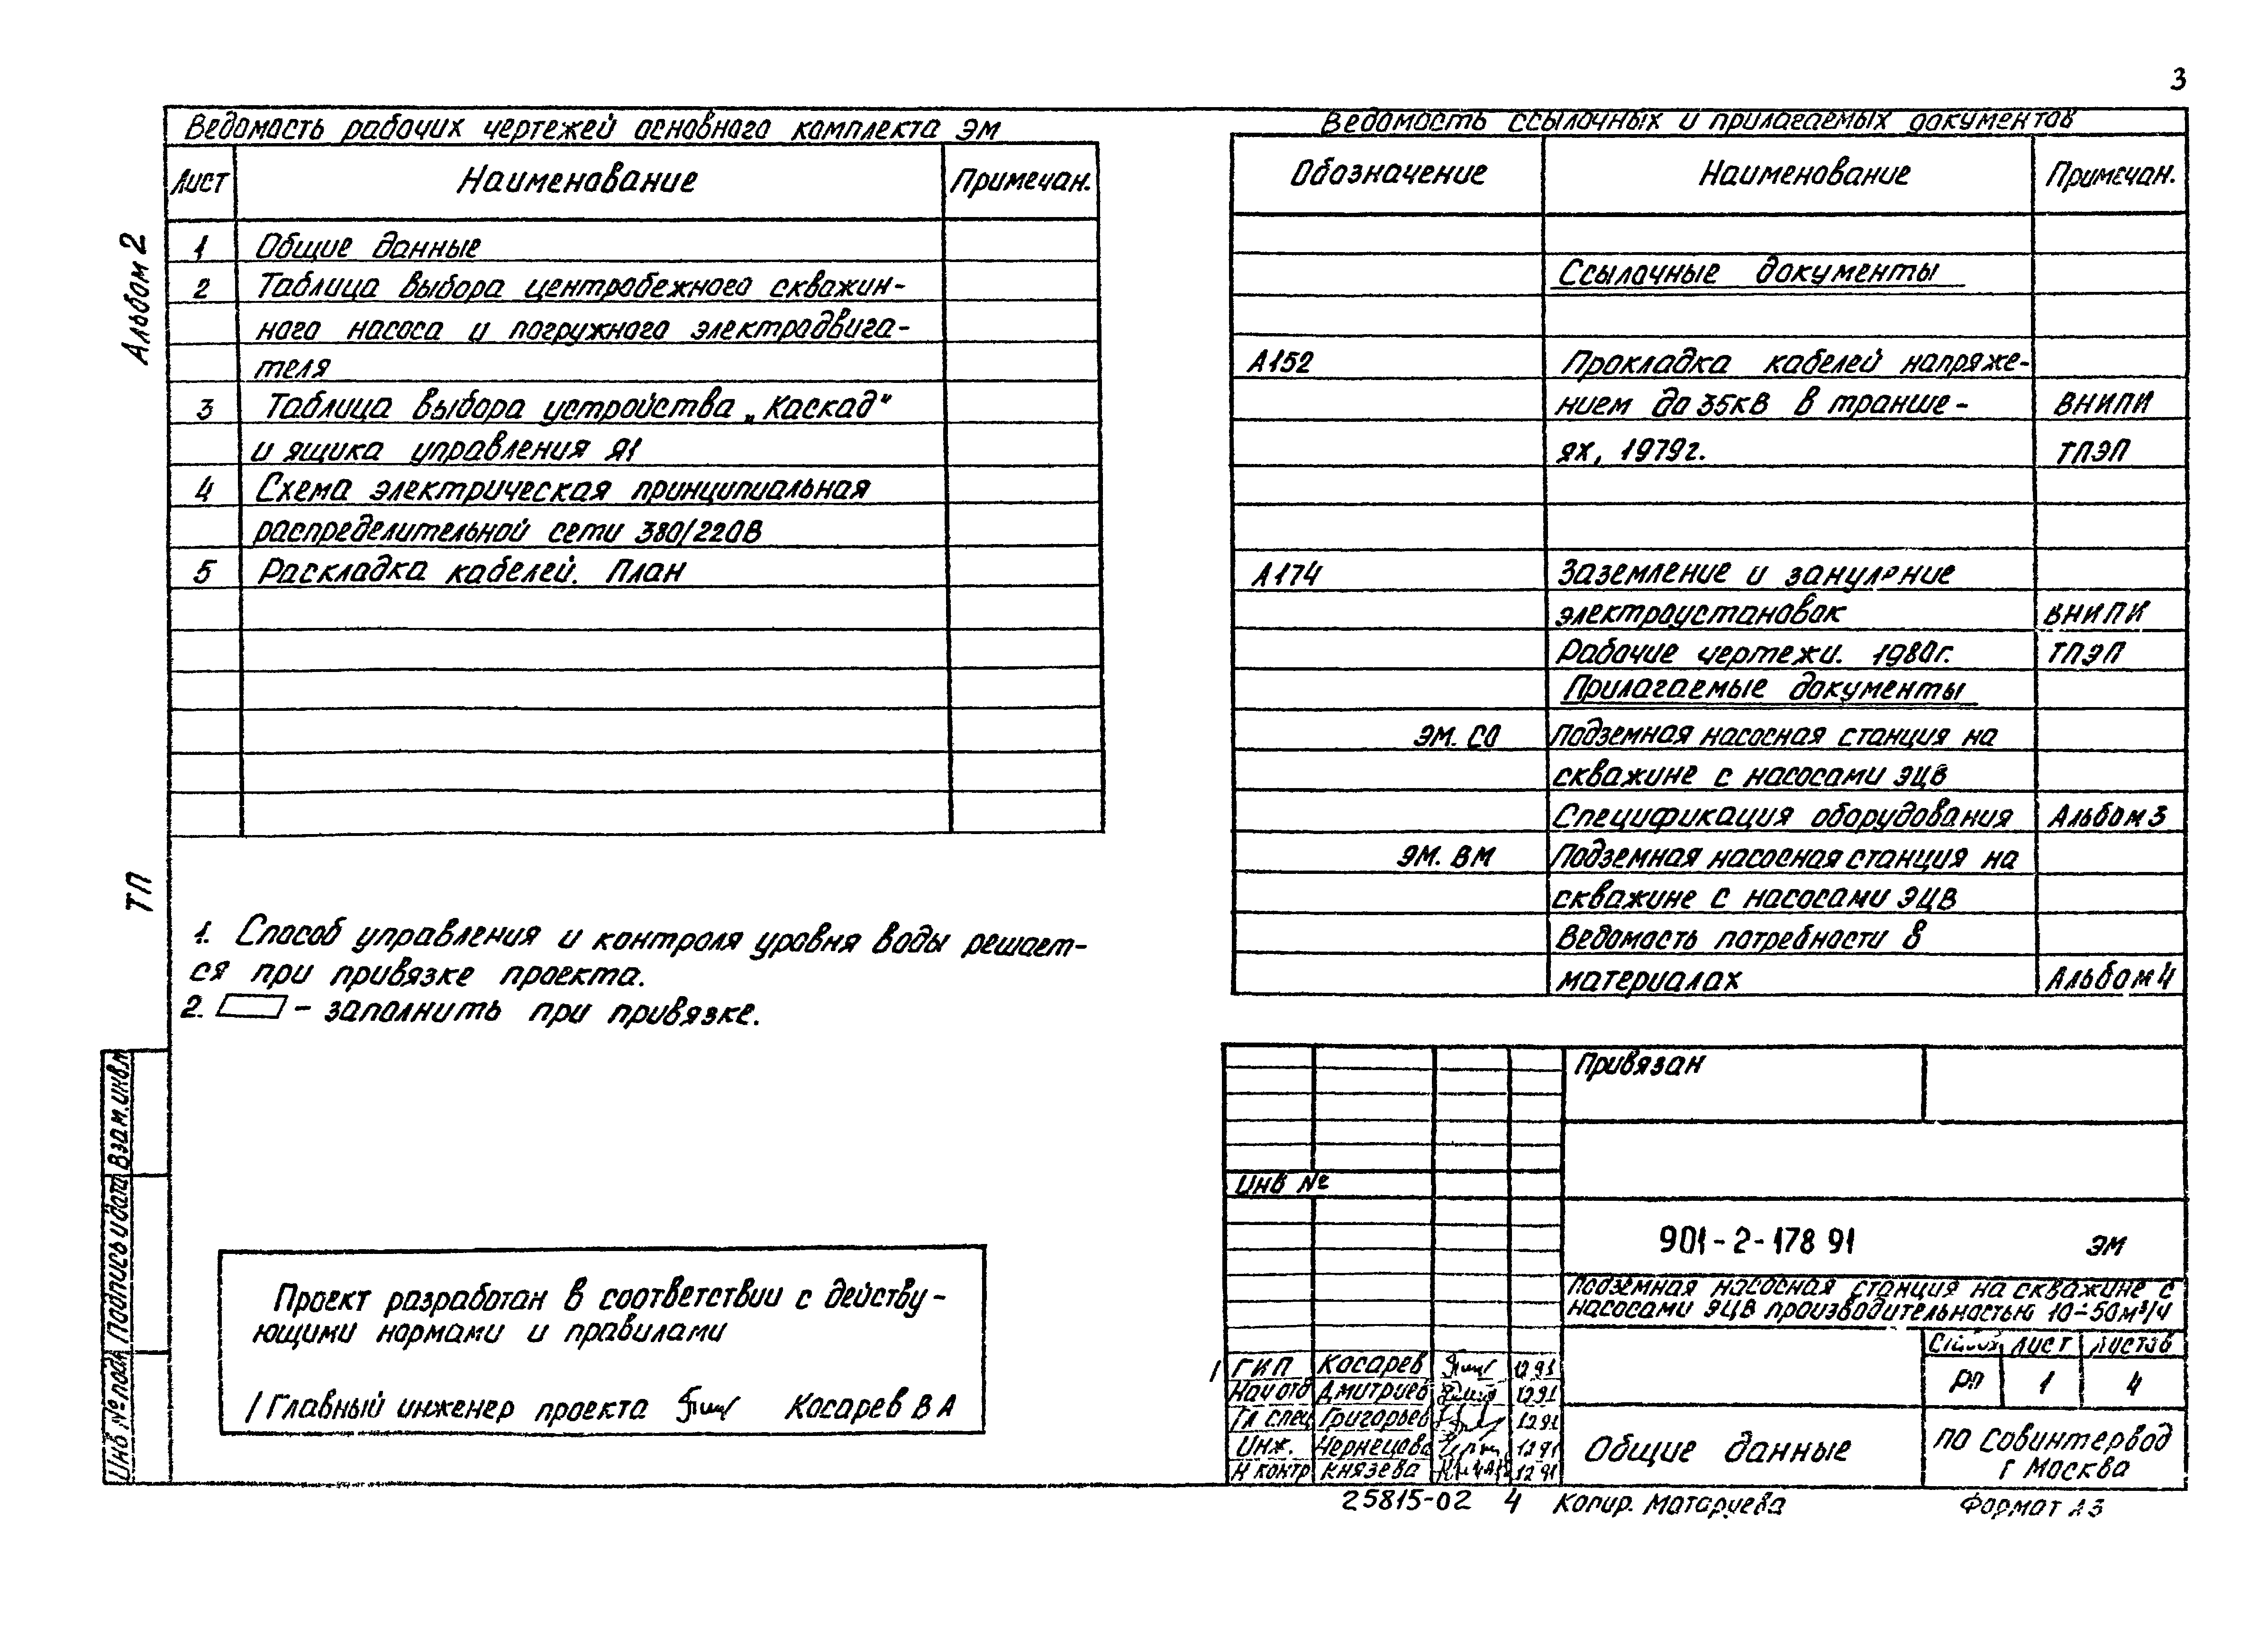 3
Альбом 2
ТП
Ведомость рабочих чертежей основного комплекта ЭМ
Лист Наименование Примечан.
1 Общие данные
2 Таблица выбора центробежного скважин-
ного насоса и погружного электродвига-
теля
3 Таблица выбора устройства „Каскад"
и ящика управления Я1
4 Схема электрическая принципиальная
распределительной сети 380/220В
5 Раскладка кабелей. План
1. Способ управления и контроля уровня воды решает-
ся при привязке проекта.
2. – заполнить при привязке.
Проект разработан в соответствии с действу-
ющими нормами и правилами
/ Главный инженер проекта Косарев В А
Взам.инв.№
Подпись и дата
Инв.№ подл
Ведомость ссылочных и прилагаемых документов
Обозначение Наименование Примечан.
Ссылочные документы
А152 Прокладка кабелей напряже-
нием до 35кВ в транше- ВНИПИ
ях, 1979г. ТПЭП
А174 Заземление и зануление
электроустановок ВНИПИ
Рабочие чертежи. 1980г. ТПЭП
Прилагаемые документы
ЭМ. СО Подземная насосная станция на
скважине с насосами ЭЦВ
Спецификация оборудования Альбом 3
ЭМ. ВМ Подземная насосная станция на
скважине с насосами ЭЦВ
Ведомость потребности в
материалах Альбом 4
Привязан
Инв №
901-2-178 91 ЭМ
Подземная насосная станция на скважине с
насосами ЭЦВ производительностью 10÷50м³/ч
Стадия Лист Листов
РП 1 4
ГИП Косарев 12 91
Нач отд Дмитриев 12 91
Гл спец Григорьев 12 91
Инж. Чернецова 12 91
Н контр Князева 12 91
Общие данные
ПО Совинтервод
г Москва
25815-02 4 Копир. Матариева Формат А3